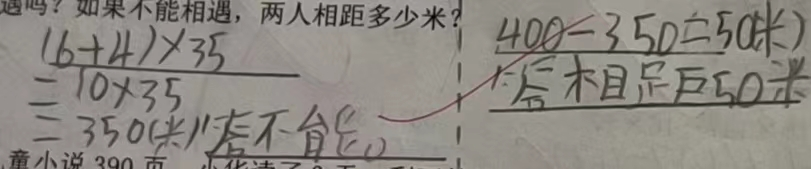 遇吗？如果不能相遇，两人相距多少米？
(6+4)×35
=10×35
=350(米)答不能。
400-350=50(米)
答:相距50米
童小说390页